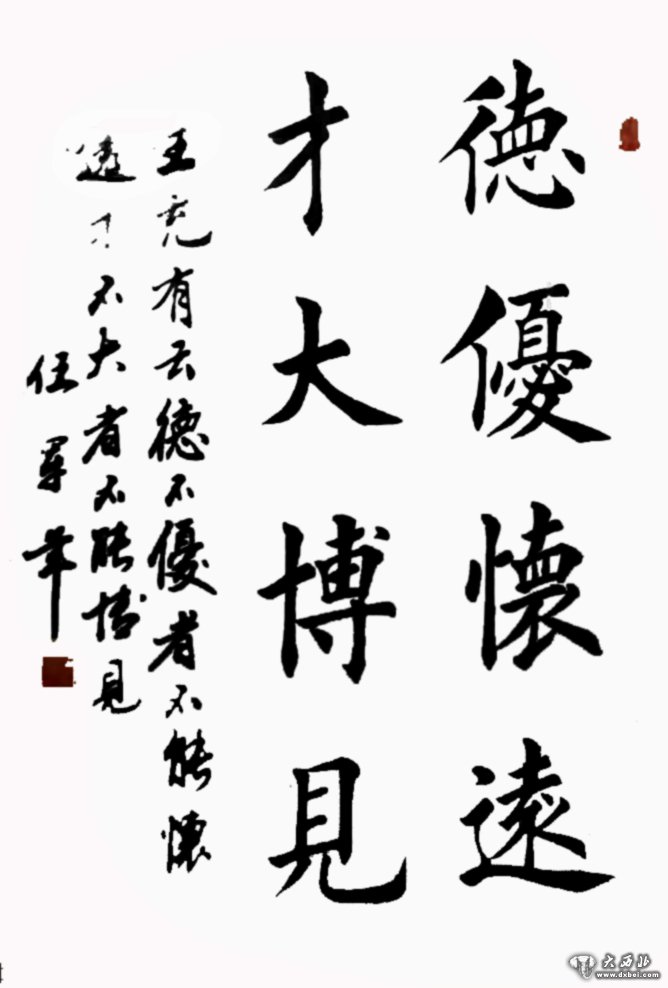 德優懷遠
才大博見
王充有云德不優者不能懷
遠才不大者不能博見
任
大西北
www.dxbei.com